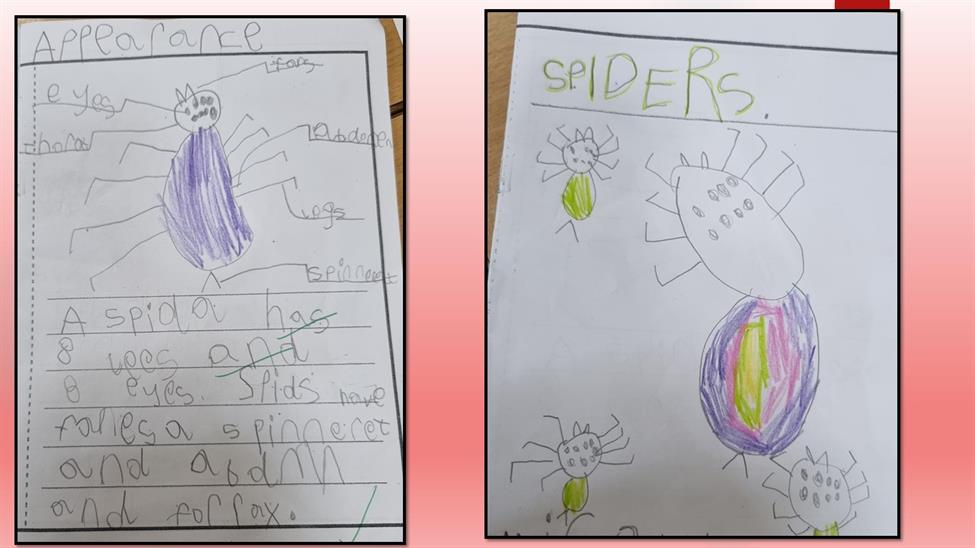 Appearance
fangs
eyes
thorax
Abdemen
legs
spinneret
A spidor has
8 legs and
8 eyes. Spids have
fanesa spinneret
and abdMn
and forrax.
SPIDERS.